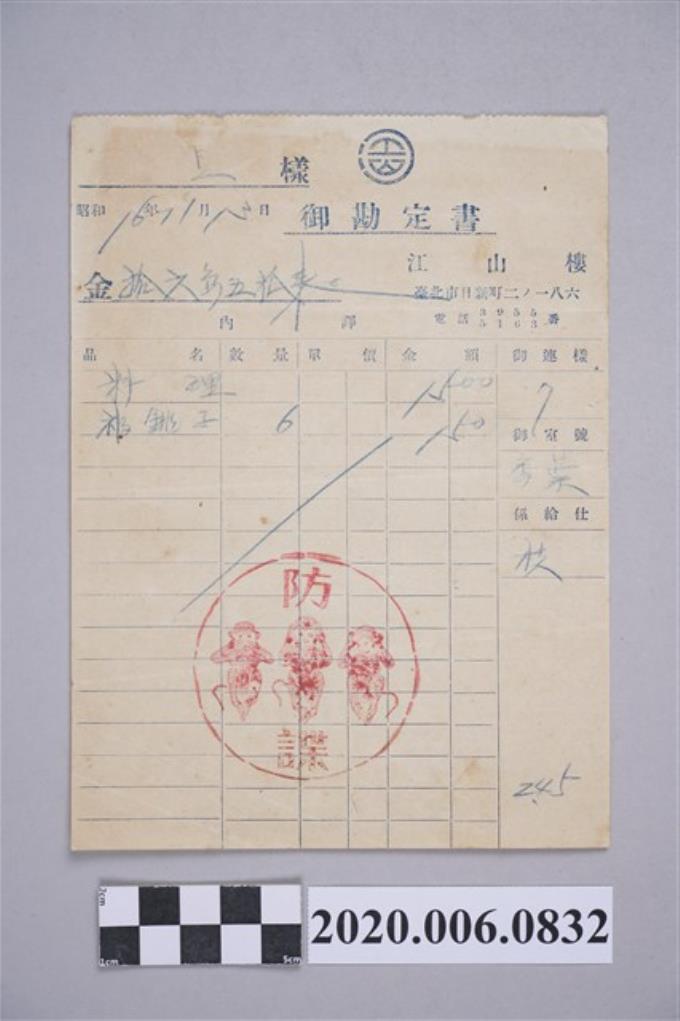 上 様
昭和 16年 11月 15日
御勘定書
江山樓
金 拾六円五拾銭也
臺北市日新町二ノ一八六
電話 3955 5163 番
内譯
品名 數量 單價 金額 御連樣
料理 1500 7
御銚子 6 150
御室號
係給仕
防諜
245
2cm
1cm 5cm
2020.006.0832